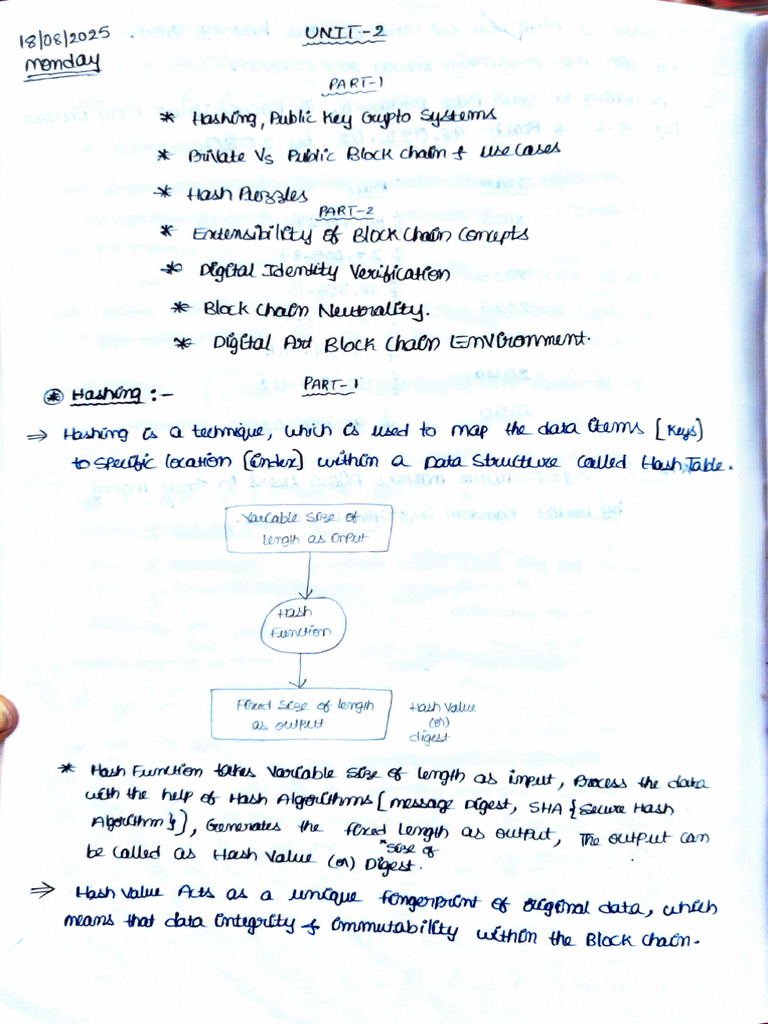 18/08/2025
Monday
UNIT-2
PART-1
* Hashing, Public Key Crypto Systems
* Private Vs Public Block Chain & Use Cases
* Hash Puzzles
PART-2
* Extensibility of Block Chain Concepts
* Digital Identity Verification
* Block Chain Neutrality.
* Digital Art Block Chain Environment.
PART-1
* Hashing :-
⇒ Hashing is a technique, which is used to map the data items [Keys]
to specific location [index] within a Data Structure called Hash Table.
Variable Size of
length as input
Hash
Function
Fixed Size of length
as output
Hash Value
(or)
digest
* Hash Function takes Variable Size of length as input, Process the data
with the help of Hash Algorithms [Message Digest, SHA {Secure Hash
Algorithm}], Generates the fixed length as output, The output can
size of
be called as Hash Value (or) Digest.
⇒ Hash Value Acts as a unique fingerprint of original data, which
means that data integrity & immutability within the Block chain.